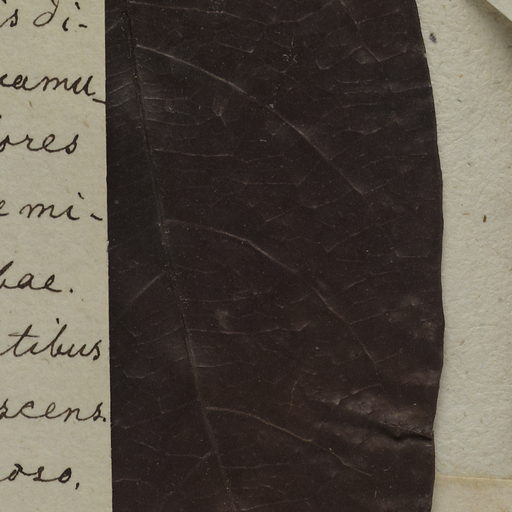 is di-
camu-
ores
e mi-
bae.
tibus
scens.
oso.